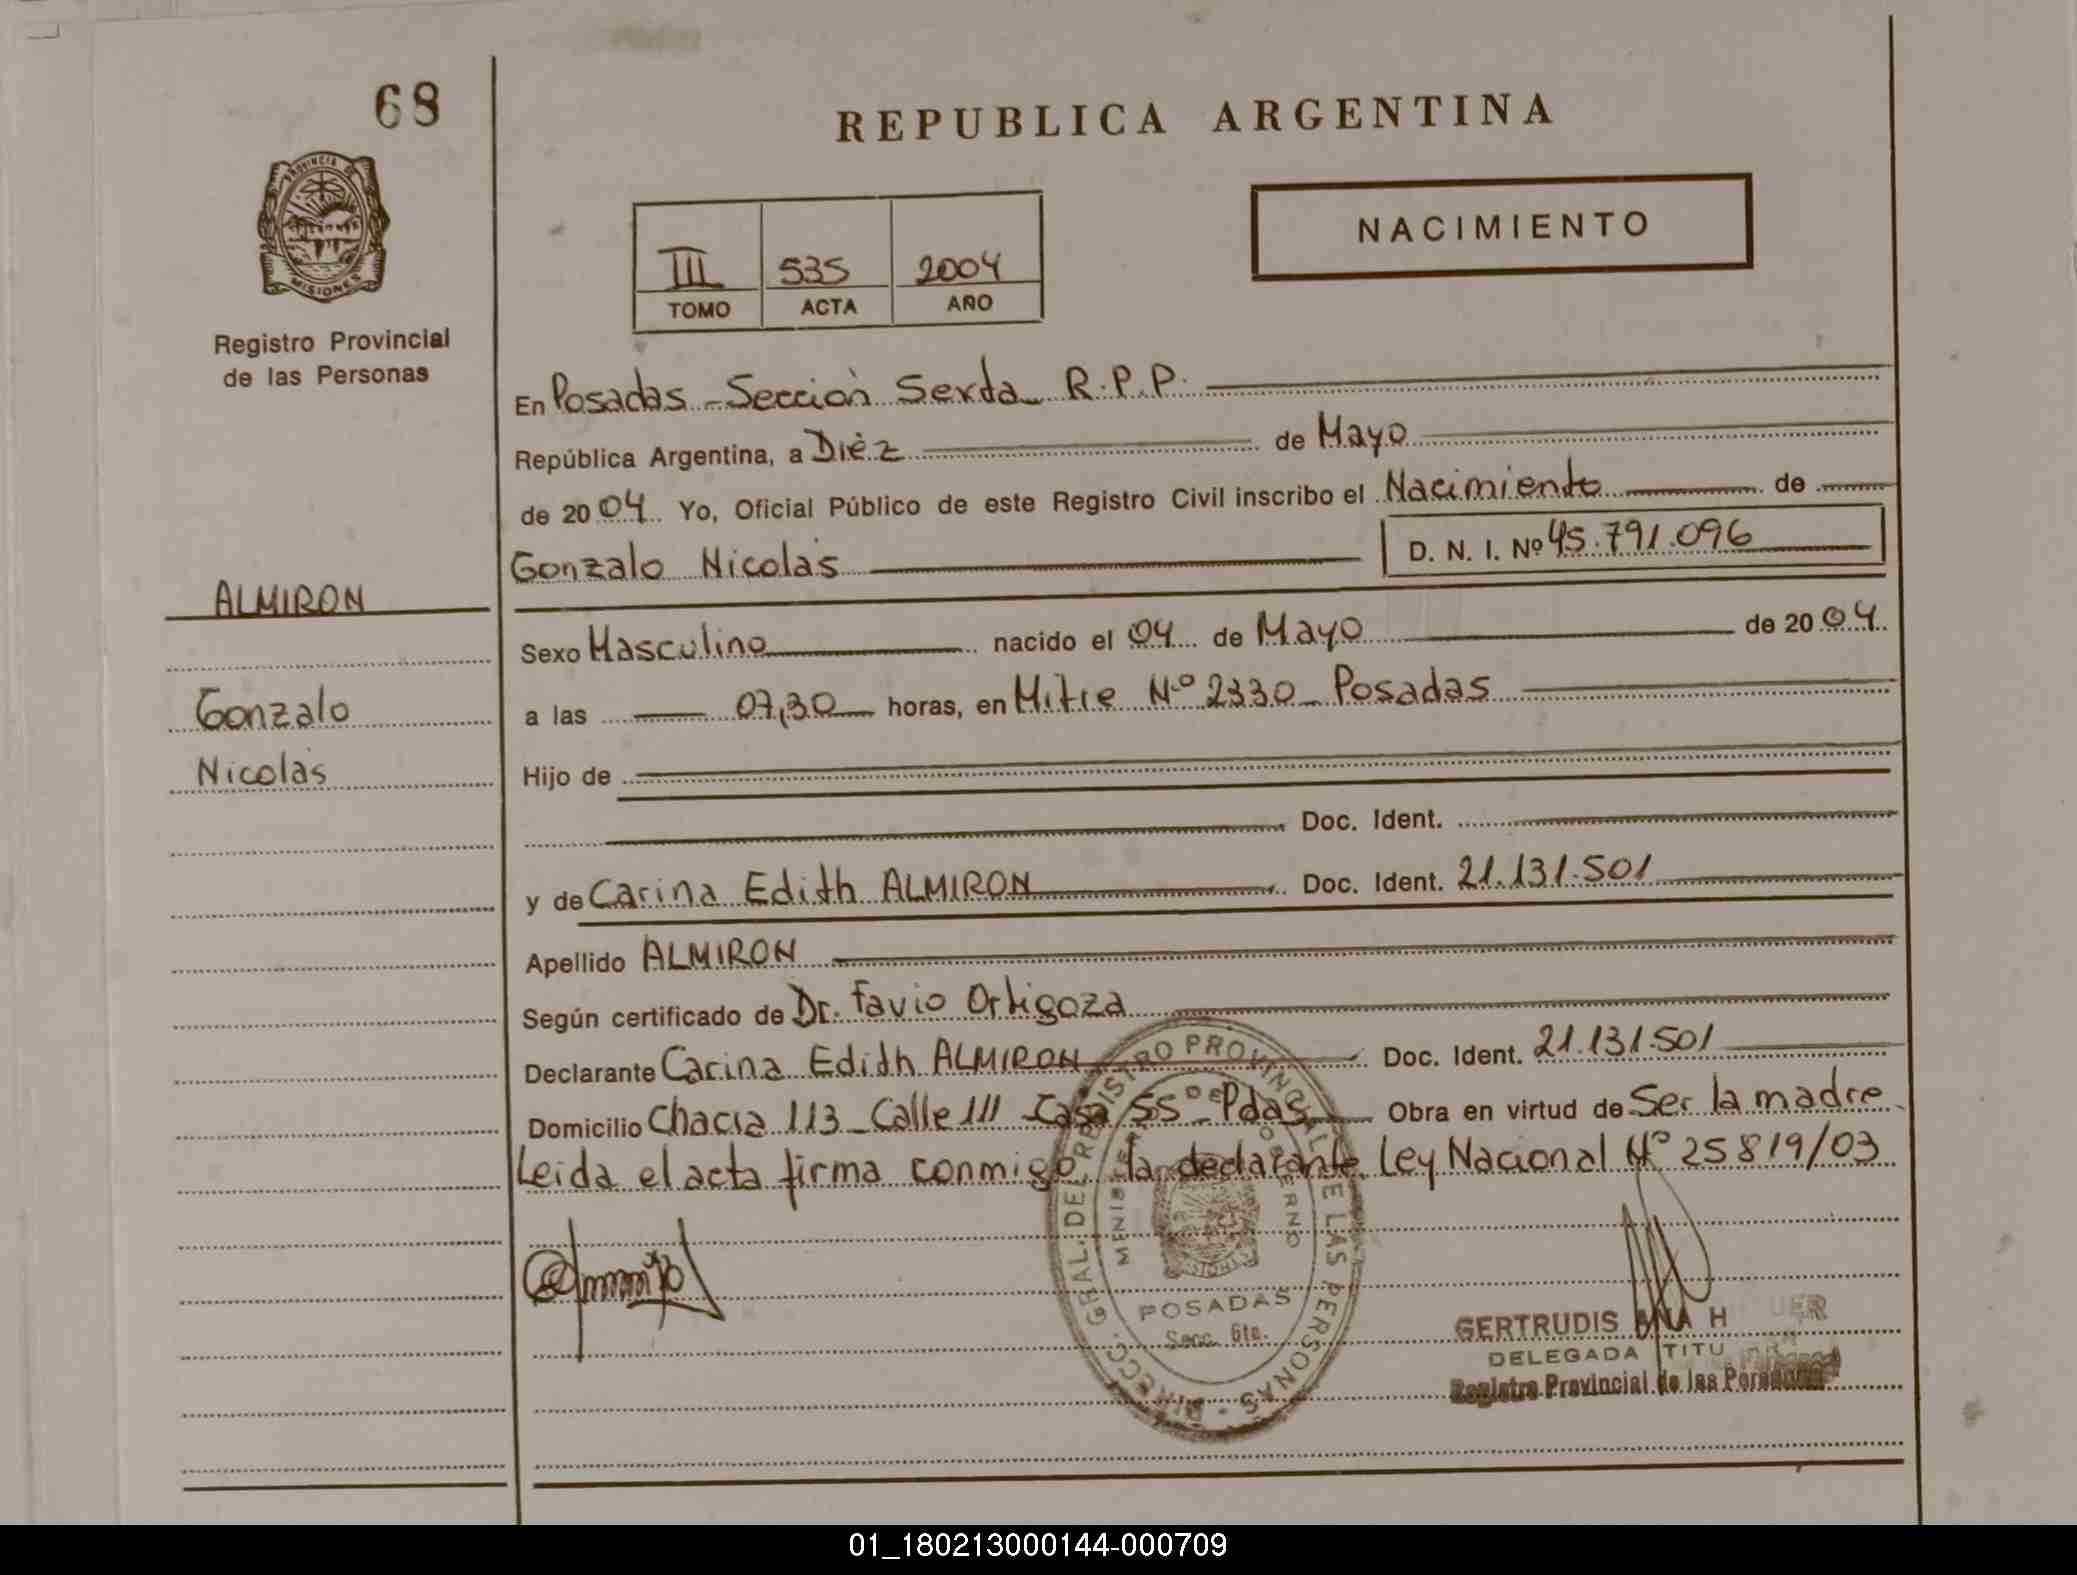 68
REPUBLICA ARGENTINA
PROVINCIA DE
MISIONES
NACIMIENTO
III 535 2004
TOMO ACTA AÑO
Registro Provincial
de las Personas
En Posadas - Sección Sexta R.P.P.
República Argentina, a Diéz de Mayo
de 2004 Yo, Oficial Público de este Registro Civil inscribo el Nacimiento de
Gonzalo Nicolás D. N. I. Nº 45.791.096
ALMIRON
Sexo Masculino nacido el 04 de Mayo de 2004
Gonzalo
a las 07,30 horas, en Mitre Nº 2330 Posadas
Nicolás
Hijo de
Doc. Ident.
y de Carina Edith ALMIRON Doc. Ident. 21.131.501
Apellido ALMIRON
Según certificado de Dr. Favio Ortigoza
Declarante Carina Edith ALMIRON Doc. Ident. 21.131.501
Domicilio Chacra 113 - Calle III - Casa 55 - Pdas Obra en virtud de Ser la madre
Leida el acta firma conmigo la declarante. Ley Nacional Nº 25819/03
DIRECC. GRAL. DEL REGISTRO PROVINCIAL DE LAS PERSONAS
DE GOBIERNO
POSADAS
Secc. 6ta.
GERTRUDIS ANA
DELEGADA TITU
Registro Provincial de las Personas
01_180213000144-000709